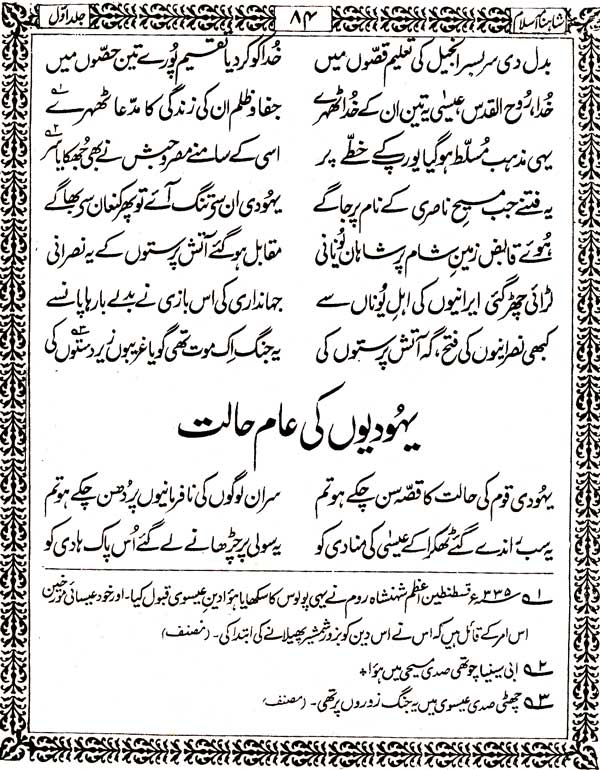 شاہنامۂ اسلام ۸۴ جلد اوّل
بدل دی سربسر انجیل کی تعلیم قصّوں میں خُدا کو کر دیا تقسیم پُورے تین حصّوں میں
خُدا، رُوح القدس عیسیٰ یہ تین ان کے خُدا ٹھہرے جفا و ظلم ان کی زندگی کا مدّعا ٹھہرے ؎۱
یہی مذہب مُسلّط ہو گیا یورپ کے خطّے پر اسی کے سامنے مصر و حبش نے بھی جُھکایا سر ؎۲
یہ فتنے جب مسیحِ ناصری کے نام پر جاگے یہودی ان سے تنگ آئے تو پھر کنعان سے بھاگے
ہُوئے قابض زمینِ شام پر شاہانِ یُونانی مقابل ہو گئے آتش پرستوں کے یہ نصرانی
لڑائی چھڑ گئی ایرانیوں کی اہلِ یُوناں سے جہانداری کی اس بازی نے بدلے بارہا پانسے
کبھی نصرانیوں کی فتح، گہ آتش پرستوں کی یہ جنگ اِک موت تھی گویا غریبوں زیردستوں کی ؎۳
یہُودیوں کی عام حالت
یہودی قوم کی حالت کا قصّہ سن چکے ہو تم سران لوگوں کی نافرمانیوں پر دُھن چکے ہو تم
یہ سب راندے گئے ٹھکرا کے عیسیٰ کی منادی کو یہ سولی پر چڑھانے لے گئے اُس پاک ہادی کو
؎۱ ۳۳۵ء قسطنطین اعظم شہنشاہ روم نے یہی پولوس کا سکھایا ہوُا دینِ عیسوی قبول کیا۔ اور خود عیسائی مؤرخین
اس امر کے قائل ہیں کہ اس نے اس دین کو بزورِ شمشیر پھیلانے کی ابتدا کی۔ (مصنف)
؎۲ ابی سینیا چوتھی صدی مسیحی میں ہوُا +
؎۳ چھٹی صدی عیسوی میں یہ جنگ زوروں پر تھی۔ (مصنف)